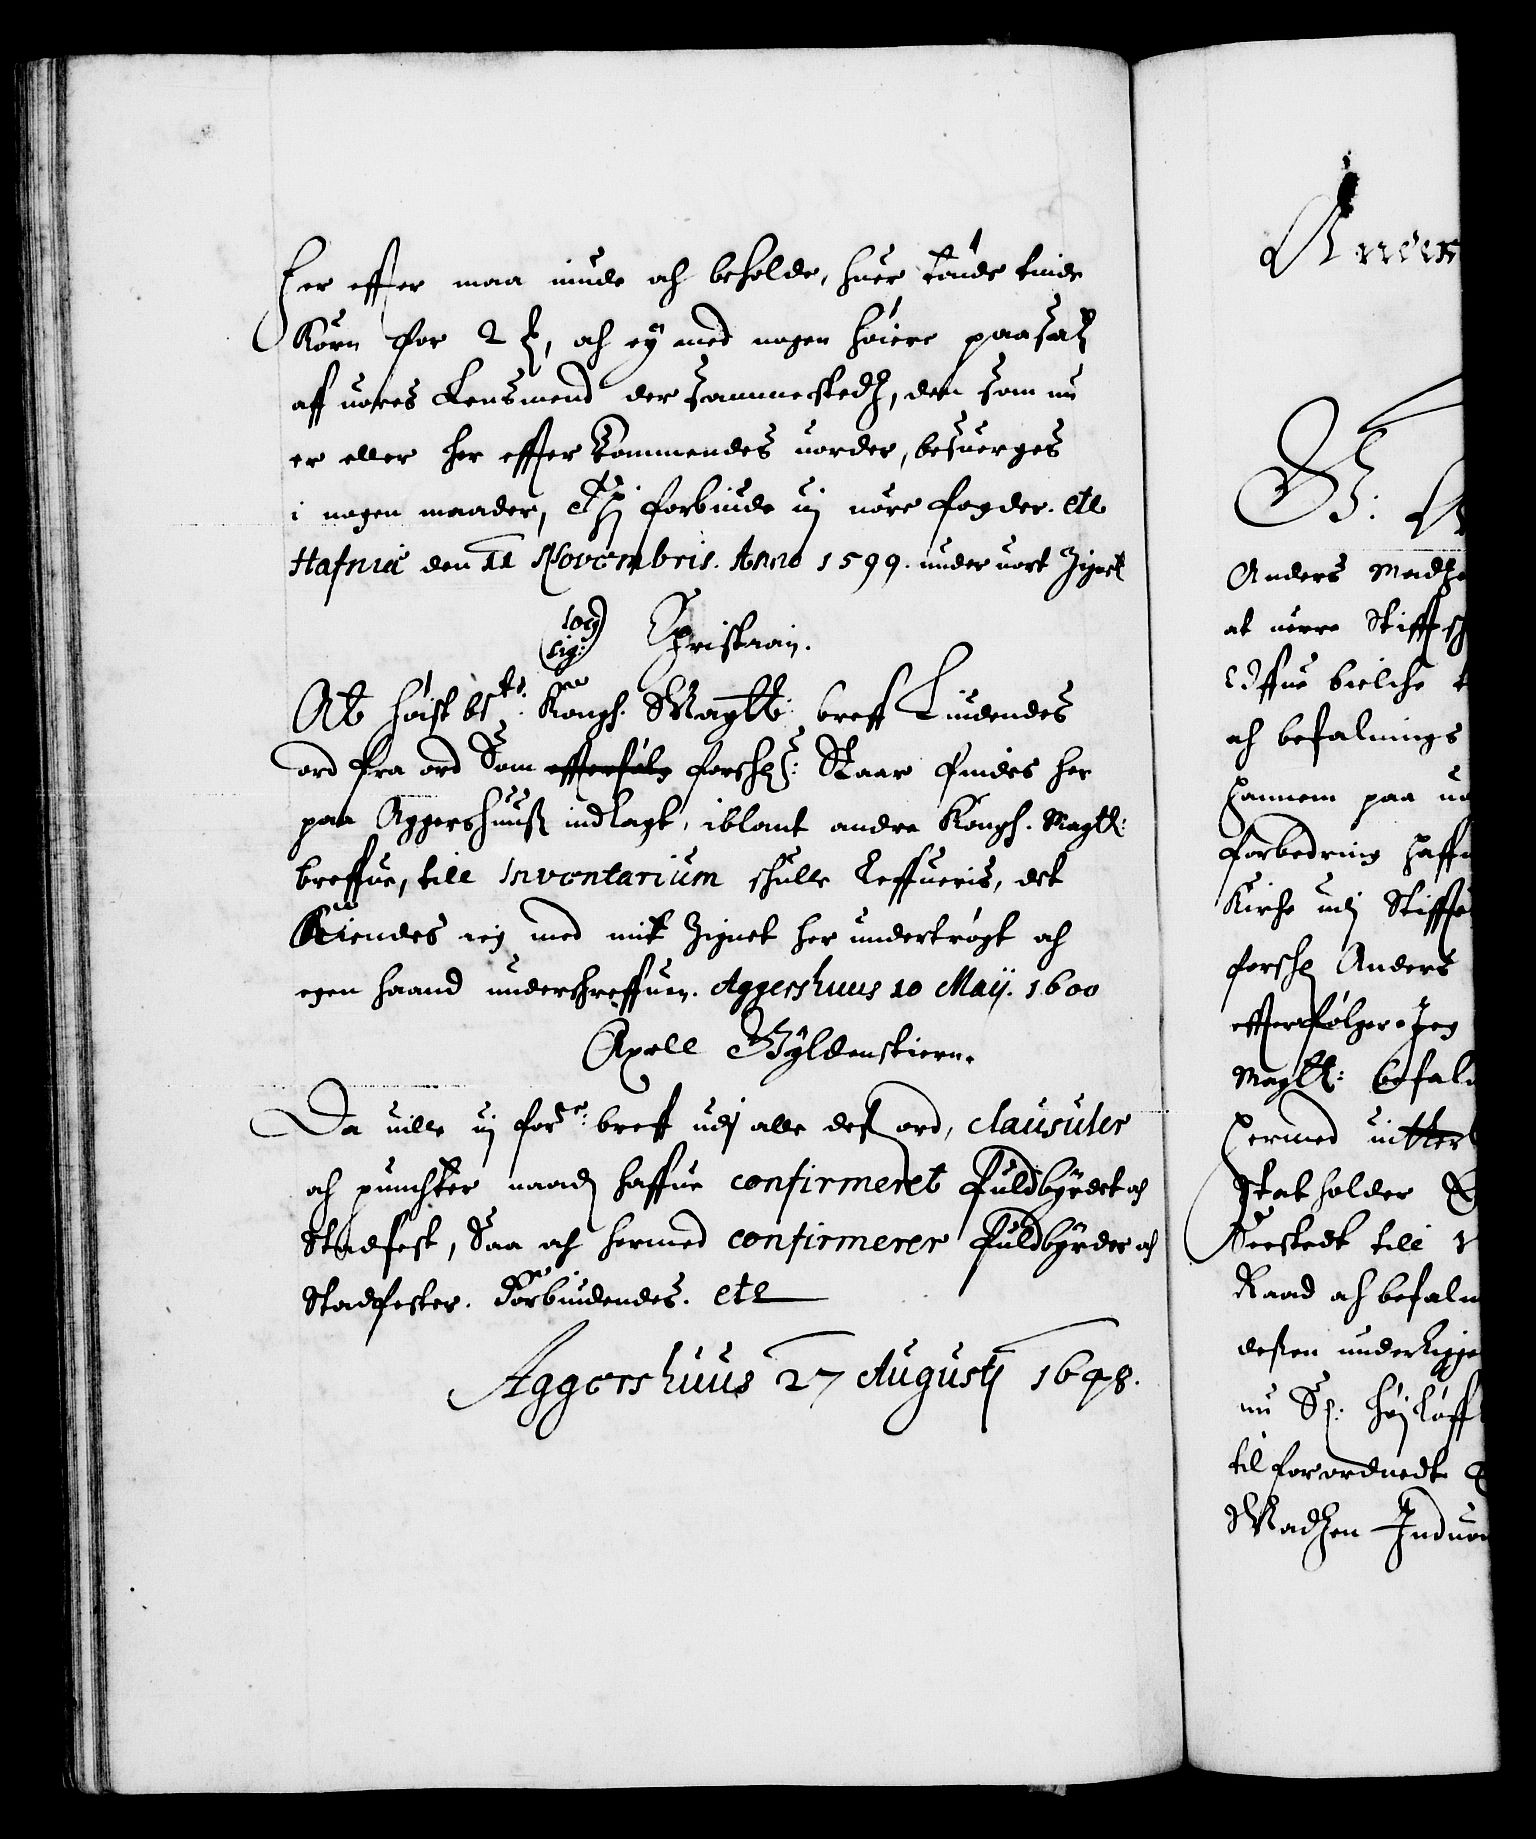 her effter maa niude och beholde, huer tønde tiende
Korn for 2 ℔, och ey med nogen høiere paasatz
aff uores Lensmend der sammestedtz, den som nu
er eller her effter kommendes uorder, besuerges
i nogen maader, Thj forbiude uj uore fogder. etc
Hafniæ den 11 Novembris. Anno 1599. under uort Zignet
Locg
Sig:
Christian.
At høist bete: Kongl. Maytt: breff Liudendes
ord fra ord Som effterfølg forschr: Staar findes her
paa Aggershuuss indlagt, iblant andre Kongl. Maytt:
breffue, till Inventarium schulle Leffueris, det
Kiendes ieg med mit Zignet her undertrøgt och
egen haand underschreffuen. Aggershuus 10 Maij. 1600
Axell Gyldenstiern.
Da uille uj forne: breff udj alle des ord, clausuler
och punchter naadj haffue confirmeret Fuldbyrdet och
Stadfest, Saa och hermed confirmerer Fuldbyrder och
Stadfester. Forbiudendes. etc
Aggershuus 27 Augustj 1648.
Anders Madtz
at uerre Stifft
och befalnings
hannem paa
forbedring haff
Kirche udj Stifft
forsch Anders
effterfølger. Jeg
Maytt: befal
hermed uitter
Statholder
Seestedt till
Raad och befaln
desen underligge
nu S: Høj Løff
til forordnedt
Madtzen Induo